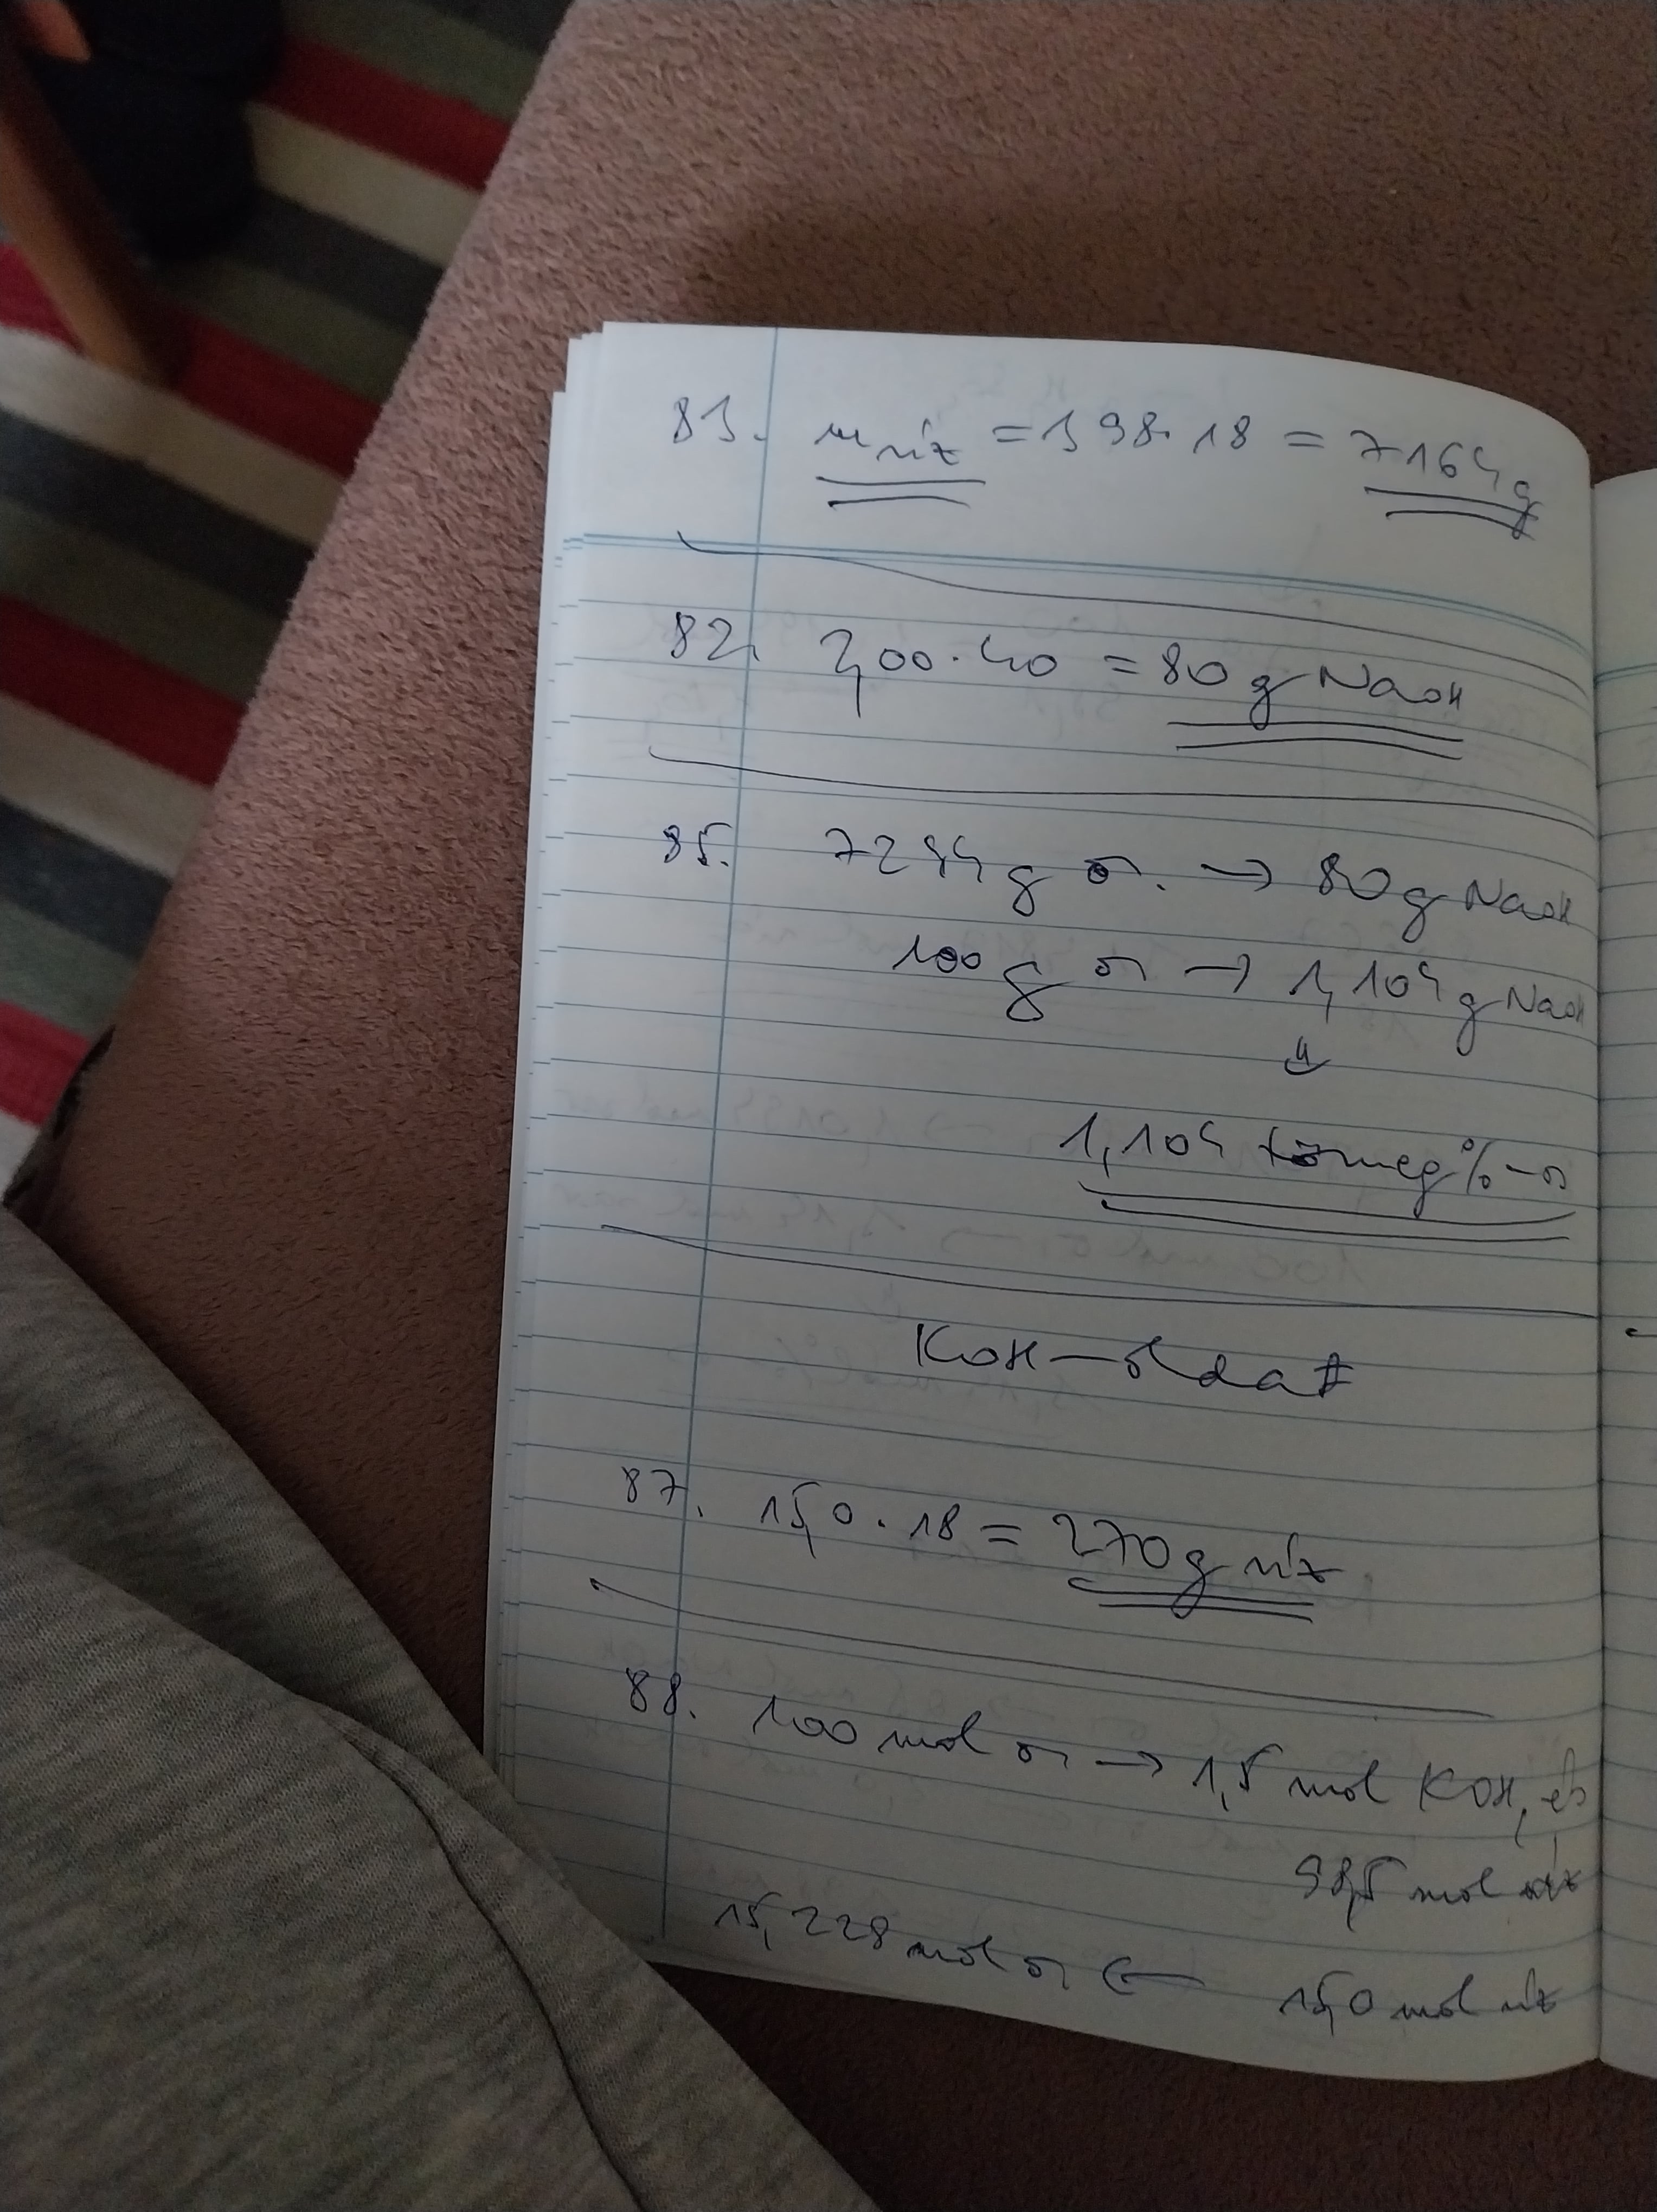 81. m víz = 398 · 18 = 7164 g
82. 2,00 · 40 = 80 g NaOH
85. 7244 g o. → 80 g NaOH
100 g o. → 1,104 g NaOH
⇓
1,104 tömeg%-os
KOH-oldat
87. 15,0 · 18 = 270 g víz
88. 100 mol o. → 1,5 mol KOH, és
98,5 mol víz
15,228 mol o. ← 15,0 mol víz